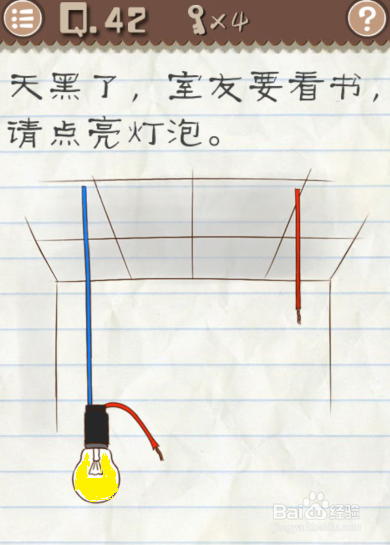 Q.42
×4
?
天黑了，室友要看书，
请点亮灯泡。
Baidu经验
jingyan.baidu.com